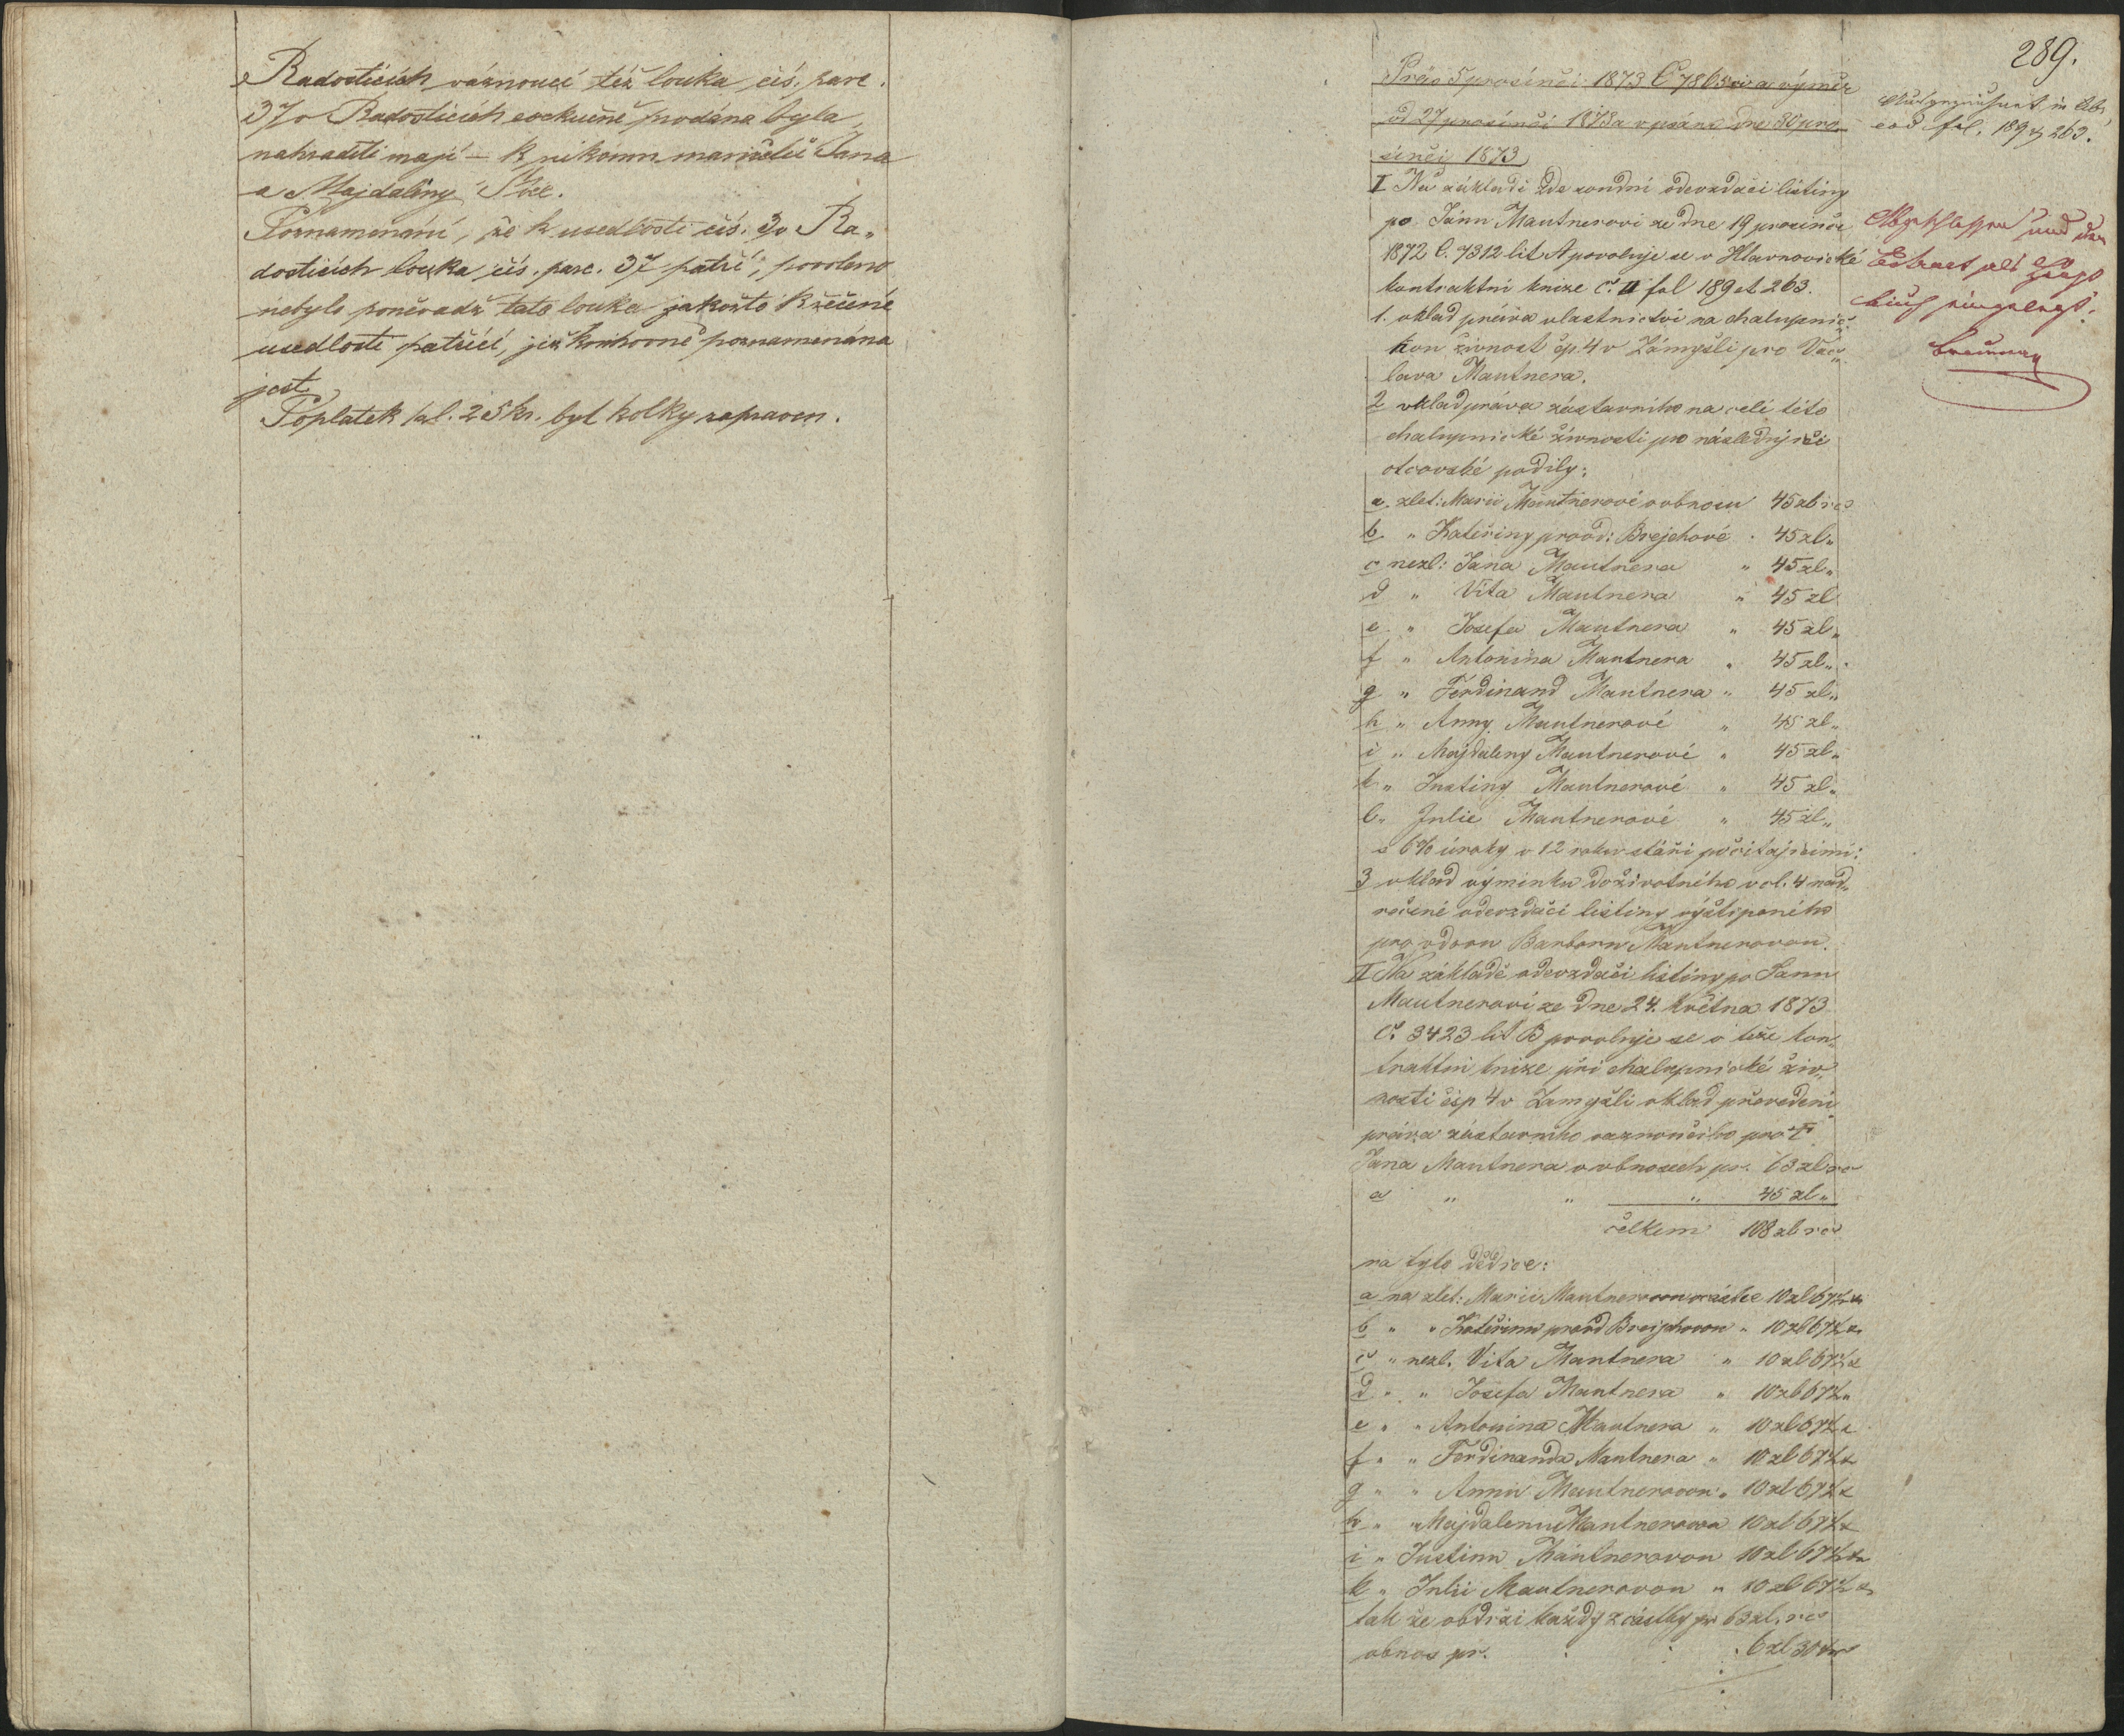 v Radosticích váznoucí též louka čís. parc.
37 v Radosticích exekučně prodána byla,
nahraditi mají – k nikomu manželů Jana
a Majdaliny
Poznamenání, že k usedlosti čís. 3 v Ra„
dosticích louka čís. parc. 37 patří, povoleno
nebylo poněvadž tato louka jakožto k řečené
usedlosti patřící, již knihovně poznamenána
jest.
Poplatek 1 zl. 25 kr. byl kolky zapraven.
289.
Präs 5 prosinci 1873 Č 7865 civ a výměr
od 27 prosinci 1873 a vpsáno dne 30 pro„
sinci 1873
I Na základě zde soudní odevzdací listiny
po Janu Mautnerovi ze dne 19 prosince
1872 č. 7312 lit A povoluje se v Hlavnovické
kontraktní knize č. II fol 189 et 263.
1. vklad práva vlastnictví na chalupnic„
kou živnost čp. 4 v Zámyšli pro Vác„
lava Mautnera.
2 vklad práva zástavního na celé této
chalupnické živnosti pro následující
otcovské podíly:
a. zlet: Marii Mautnerové v obnosu 45 zl rč
b. „ Kateřiny provd: Brejchové „ 45 zl „
c nezl: Jana Mautnera „ 45 zl „
d „ Víta Mautnera „ 45 zl
e „ Josefa Mautnera „ 45 zl „
f „ Antonína Mautnera „ 45 zl „
g „ Ferdinand Mautnera „ 45 zl „
h „ Anny Mautnerové „ 45 zl „
i „ Majdaleny Mautnerové „ 45 zl „
k „ Justiny Mautnerové „ 45 zl „
l „ Julie Mautnerové „ 45 zl „
s 6% úroky v 12 roku stáří počítajícími:
3 vklad výminku doživotního v čl. 4 nad„
řečené odevzdací listiny
pro vdovu Barboru Mautnerovou.
II Na základě odevzdací listiny po Janu
Mautnerovi ze dne 24. Května 1873
č. 3423 lit B povoluje se v téže kon„
traktní knize při chalupnické živ„
nosti čsp 4 v Zamyšli vklad převedení
práva zástavního váznoucího pro †
Jana Mautnera v obnosech pr. 63 zl rč
a „ „ „ 45 zl „
celkem 108 zl rč
na tyto dědice:
a na zlet: Marii Mautnerovou v částce 10 zl 67½
b „ „ Kateřinu provd Brejchovou „ 10 zl 67½
c „ nezl. Víta Mautnera „ 10 zl 67½
d „ „ Josefa Mautnera „ 10 zl 67½
e „ „ Antonína Mautnera „ 10 zl 67½
f „ „ Ferdinanda Mautnera „ 10 zl 67½
g „ „ Annu Mautnerovou „ 10 zl 67½
h „ „ Majdalenu Mautnerovou 10 zl 67½
i „ Justinu Mautnerovou 10 zl 67½
k „ Julii Mautnerovou „ 10 zl 67½
tak že obdrží každý z částky pr 63 zl. rč
obnos pr. 6 zl 30 kr
in
eod fol. 189 & 263.
und
Extract